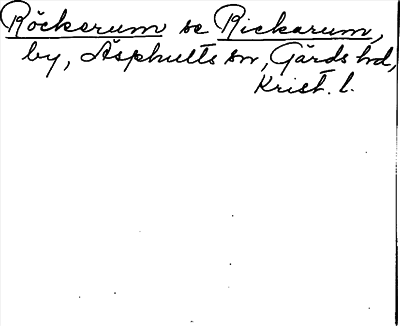 Röckarum se Rickarum,
by, Äsphults sn, Gärds hd,
Krist. l.